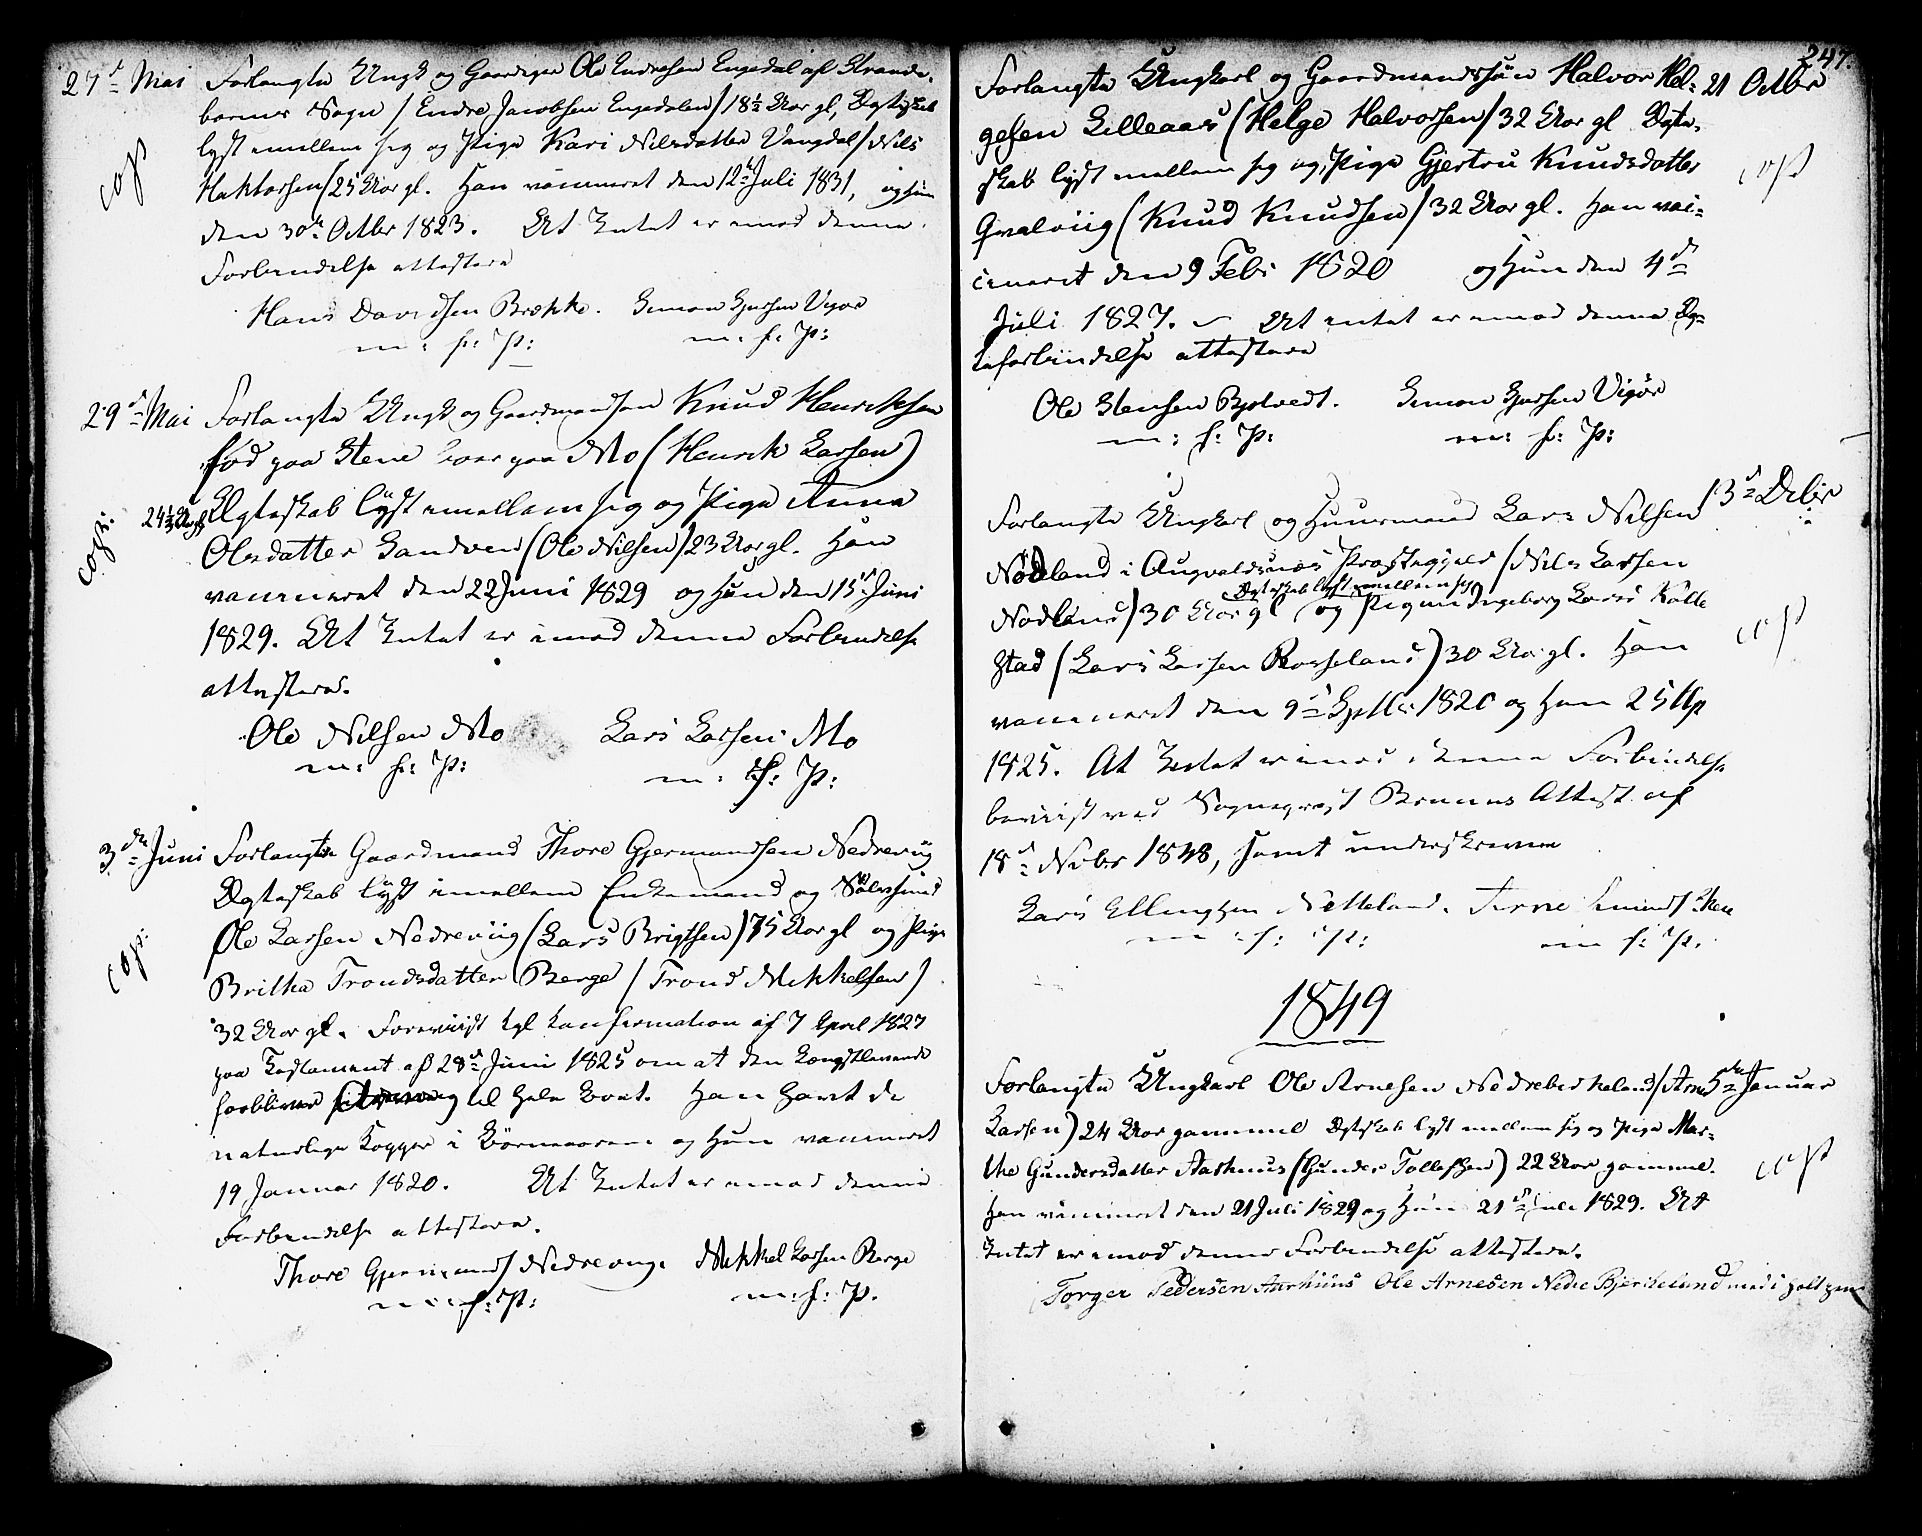 27de Mai Forlangte Ungk og Gaardeier Ole Endresen Engedal af Strande-
barms Sogn / Endre Jacobsen Engedalen / 18½ Aar gl, Ægteskab
lyst imellem sig og Pige Kari Nilsdatter Vangdal / Nils
cop
Haktorsen / 25 Aar gl. Han vaccineret den 12te Juli 1831, og hun
den 30te Octbr 1823. At Intet er imod denne
Forbindelse attestere
Hans Davidsen Brekke. Simon Vigør
m: f: P: m: f: P:
29de Mai Forlangte Ungk og Gaardmandssøn Knud Henriksen
fød paa Stene boer paa Mo (Henrik Larsen)
24½ Aar gl Ægteskab lyst imellem sig og Pige Anna
cop:
Olesdatter Sandven (Ole Nilsen) 23 Aar gl. Han
vaccineret den 22 Juni 1829 og Hun den 15de Juni
1829. At Intet er imod denne Forbindelse
attestere.
Ole Nilsen Mo Lars Larsen Mo
m: f: P: m: f: P:
3die Juni Forlangte Gaardmand Thore Gjermundsen Nedreviig
Ægteskab lyst imellem Enkemand og Sølvsmed
Ole Larsen Nedreviig (Lars Brigtsen) 75 Aar gl og Pige
cop:
Britha Trondsdatter Berge / Trond Mikkelsen /
32 Aar gl. Foreviist kgl Confirmation af 7 April 1827
paa Testament af 28de Juni 1825 om at den Længstlevende
forbliver til hele Boet. Han havt de
naturlige Kopper i Børneaarene og Hun vaccineret
19 Januar 1820. At Intet er imod denne
Forbindelse attestere.
Thore Gjermunds Nedreviig. Mikkel Larsen Berge
m: f: P: m: f: P.
247.
Forlangte Ungkarl og Gaardmandssøn Halvor Hel- 21 Octbr
gesen Lilleaas (Helge Halvorsen / 32 Aar gl Ægte-
skab lyst mellem sig og Pige Gjertru Knudsdatter
cop
Qvalviig (Knud Knudsen / 32 Aar gl. Han vac-
cineret den 9 Febr 1820 og Hun den 4de
Juli 1827. At intet er imod denne Æg-
teforbindelse attestere
Ole Stensen Bjotvedt. Simon Vigør
m: f: P: m: f: P:
Forlangte Ungkarl og Huusmand Lars Nilsen 13de Decbr
Nødland i Augvaldsnæs Præstegjeld / Nils Larsen
Ægteskab lyst imellem sig
Nødland) 30 Aar gl og Pigen Ingeborg Lars Kolle
cop
stad (Lars Larsen Rosseland) 30 Aar gl. Han
vaccineret den 9de Septbr 1820 og Hun 25 Ap
1825. At Intet er imod denne Forbindelse
beviist ved Sognepræst Bruuns Attest af
18de Novbr 1848, samt underskrevne
Lars Ellingsen Netteland. Arne
m: f: P: m f: P.
1849
Forlangte Ungkarl Ole Arnesen Nedrebirkeland / Arne 5te Januar
Larsen) 24 Aar gammel Ægteskab lyst mellem sig og Pige Mar-
the Gundersdatter Aarhuus (Gunder Tollefsen) 22 Aar gammel.
cop
Han vaccineret den 21 Juli 1829 og Hun 21de Juli 1829. At
Intet er imod denne Forbindelse attestere.
Torger Pedersen Aarhuus Ole Arnesen Nedre Bjerkeland med i holt pen